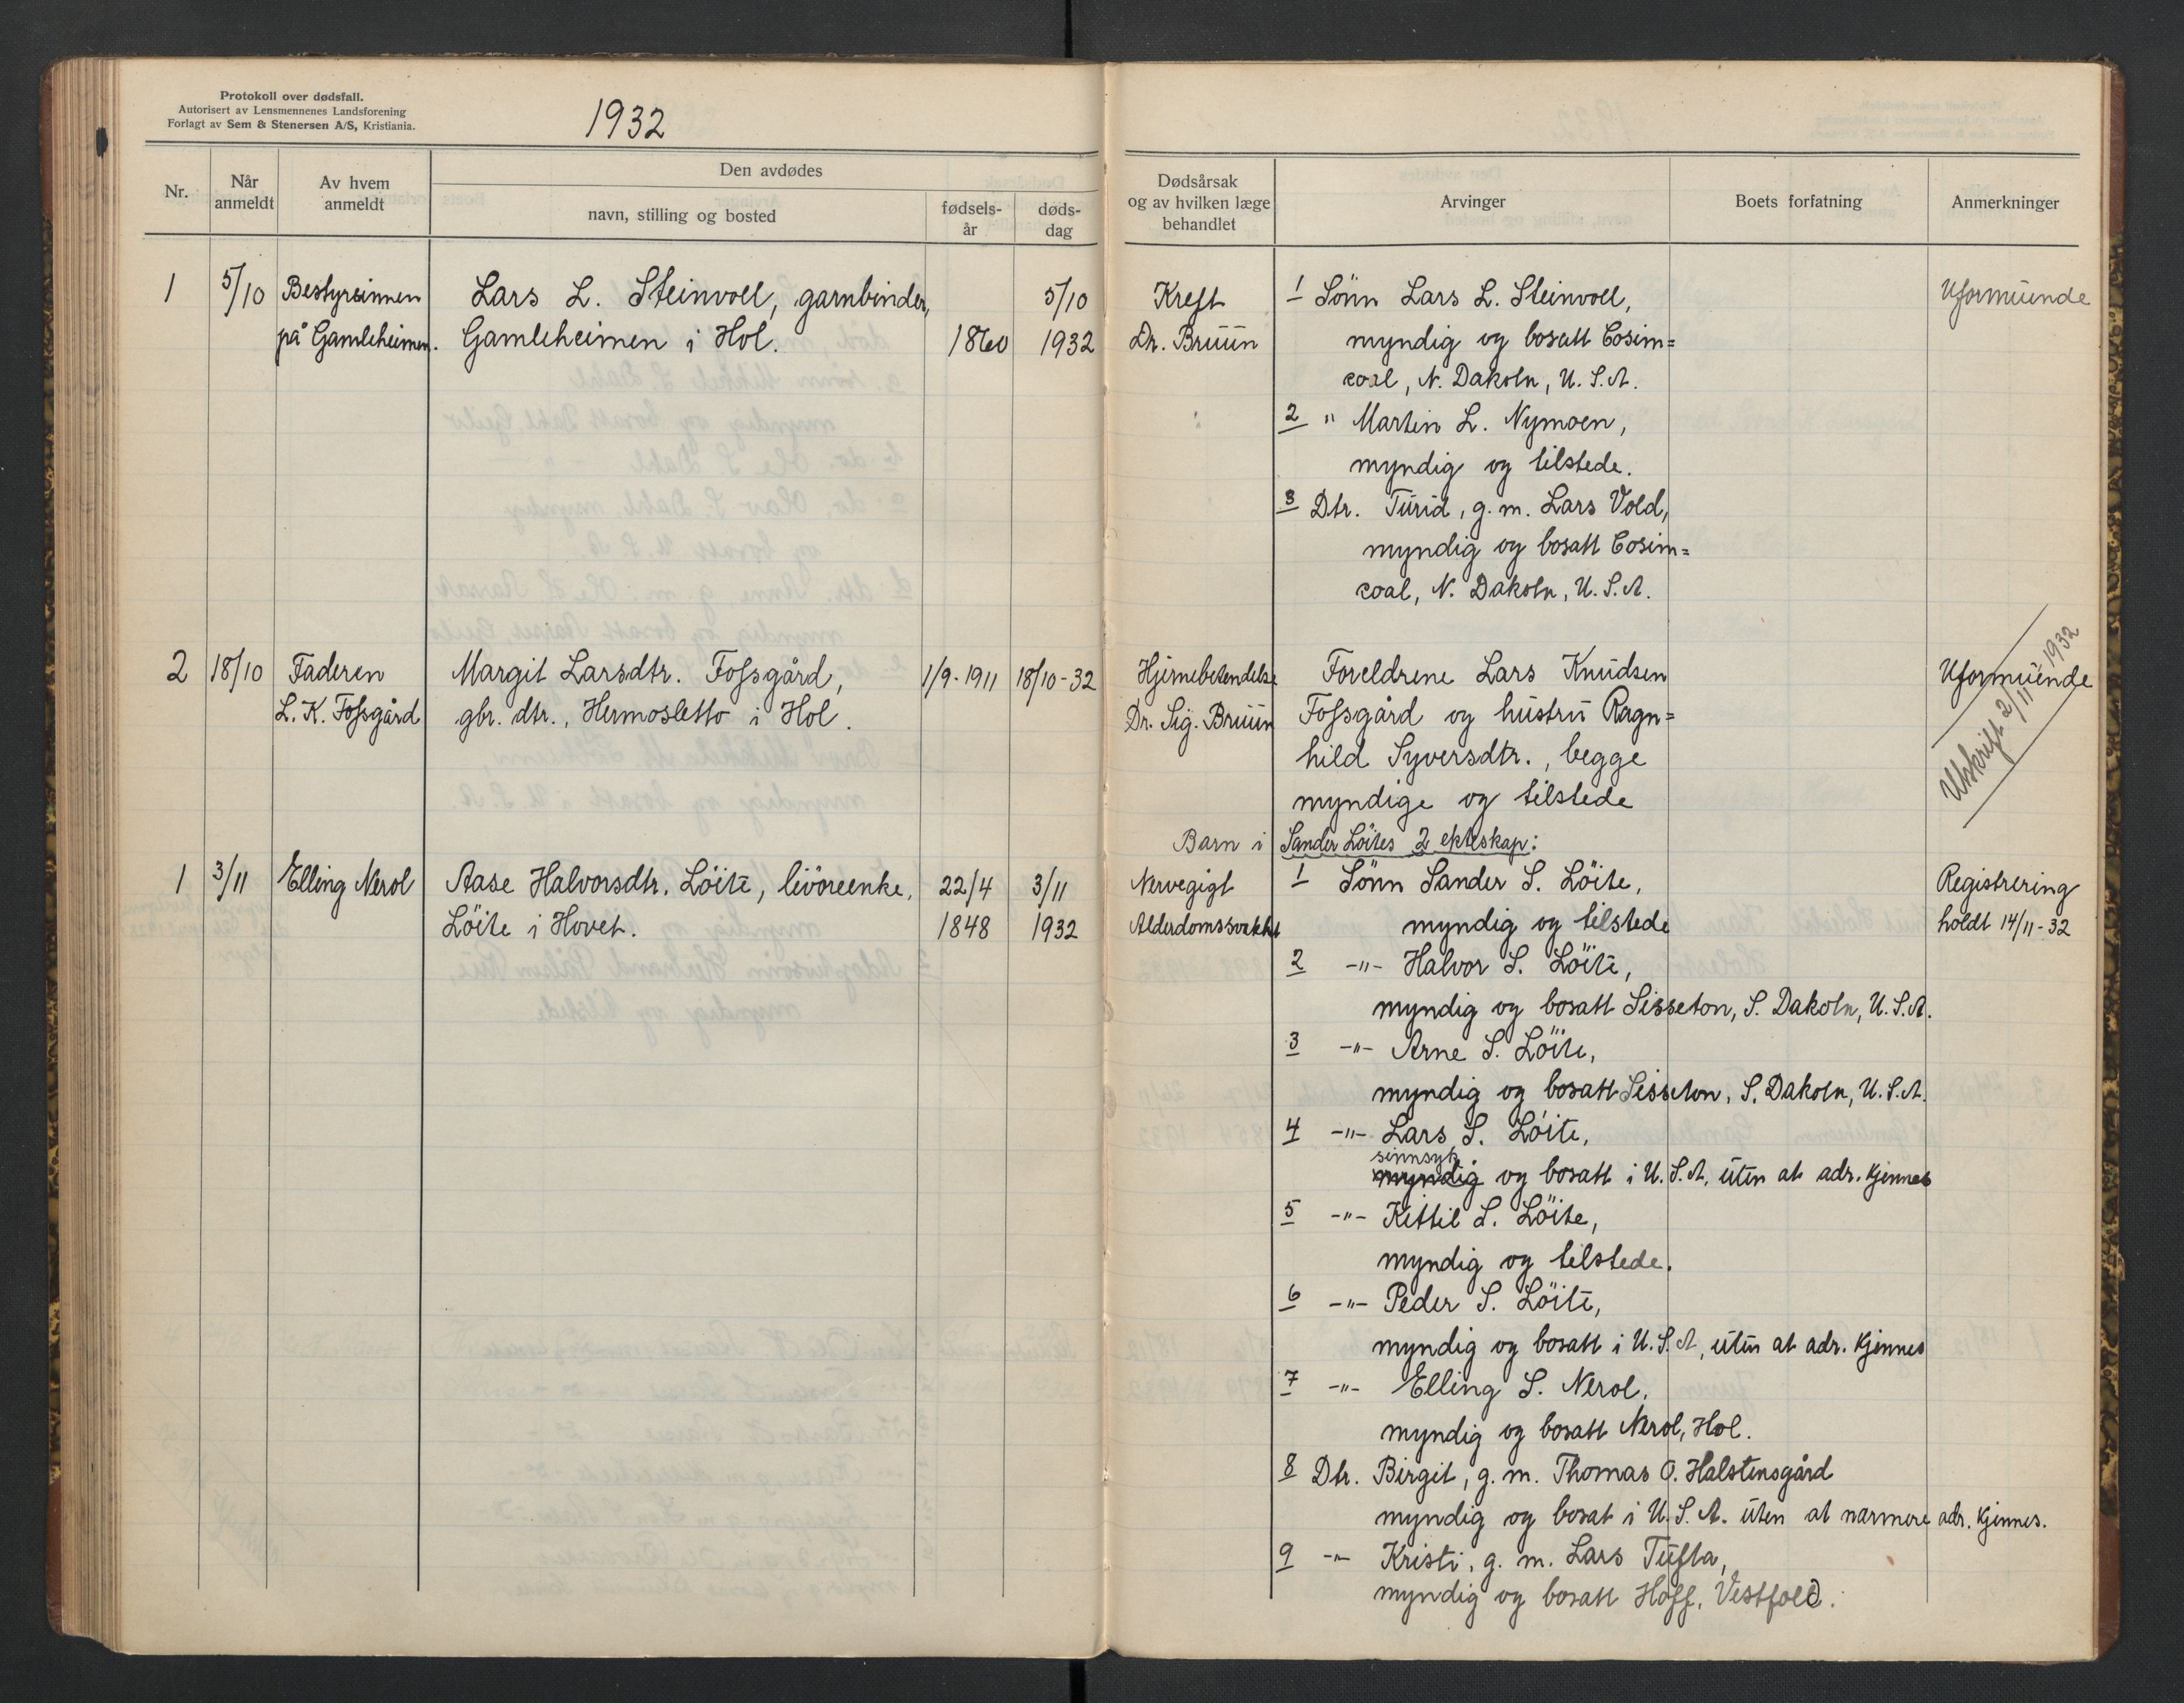 Protokoll over dødsfall.
Autorisert av Lensmennenes Landsforening
Forlagt av Sem & Stenersen A/S, Kristiania.
1932
Nr.
Når anmeldt
Av hvem anmeldt
Den avdødes
navn, stilling og bosted
fødsels-år
døds-dag
Dødsårsak og av hvilken læge behandlet
Arvinger
Boets forfatning
Anmerkninger
1 5/10 Bestyrerinnen Lars L. Steinvoll, garnbinder, 5/10 Kreft 1 Sönn Lars L. Steinvoll, Uformuende
på Gamleheimen. Gamleheimen i Hol. 1860 1932 Dr. Bruun myndig og bosatt Cosim=
coal, N. Dakota, U.S.A.
2 " Martin L. Nymoen,
myndig og tilstede.
3 Dtr. Turid, g.m. Lars Vold,
myndig og bosatt Cosim=
coal, N. Dakota, U.S.A.
2 18/10 Faderen Margit Larsdtr. Fossgård, 1/9-1911 18/10-32 Hjernebetendelse Foreldrene Lars Knudsen Uformuende
L. K. Fossgård gbr. dtr., Hermosletto i Hol. Dr. Sig. Bruun Fossgård og hustru Ragn=
hild Syversdtr., begge
myndige og tilstede
Utskrift 2/11 1932
Barn i Sander Löites 2 ekteskap:
1 3/11 Elling Nerol Aase Halvorsdtr. Löite, livöreenke, 22/4 3/11 Nervegigt 1 Sönn Sander S. Löite, Registrering
Löite i Hovet. 1848 1932 Alderdomssvakhet myndig og tilstede holdt 14/11-32
2 -"- Halvor S. Löite,
myndig og bosatt Sisseton, S. Dakota, U.S.A.
3 -"- Arne S. Löite,
myndig og bosatt Sisseton, S. Dakota, U.S.A.
4 -"- Lars S. Löite,
sinnsyk
myndig og bosatt i U.S.A, uten at adr. kjennes
5 -"- Kittil S. Löite,
myndig og tilstede.
6 -"- Peder S. Löite,
myndig og bosatt i U.S.A, uten at adr. kjennes
7 -"- Elling S. Nerol,
myndig og bosatt Nerol, Hol.
8 Dtr. Birgit, g.m. Thomas O. Halstensgård
myndig og bosat i U.S.A. uten at nærmere adr. kjennes.
9 -"- Kristi, g.m. Lars Tufta,
myndig og bosatt Hoff, Vestfold.